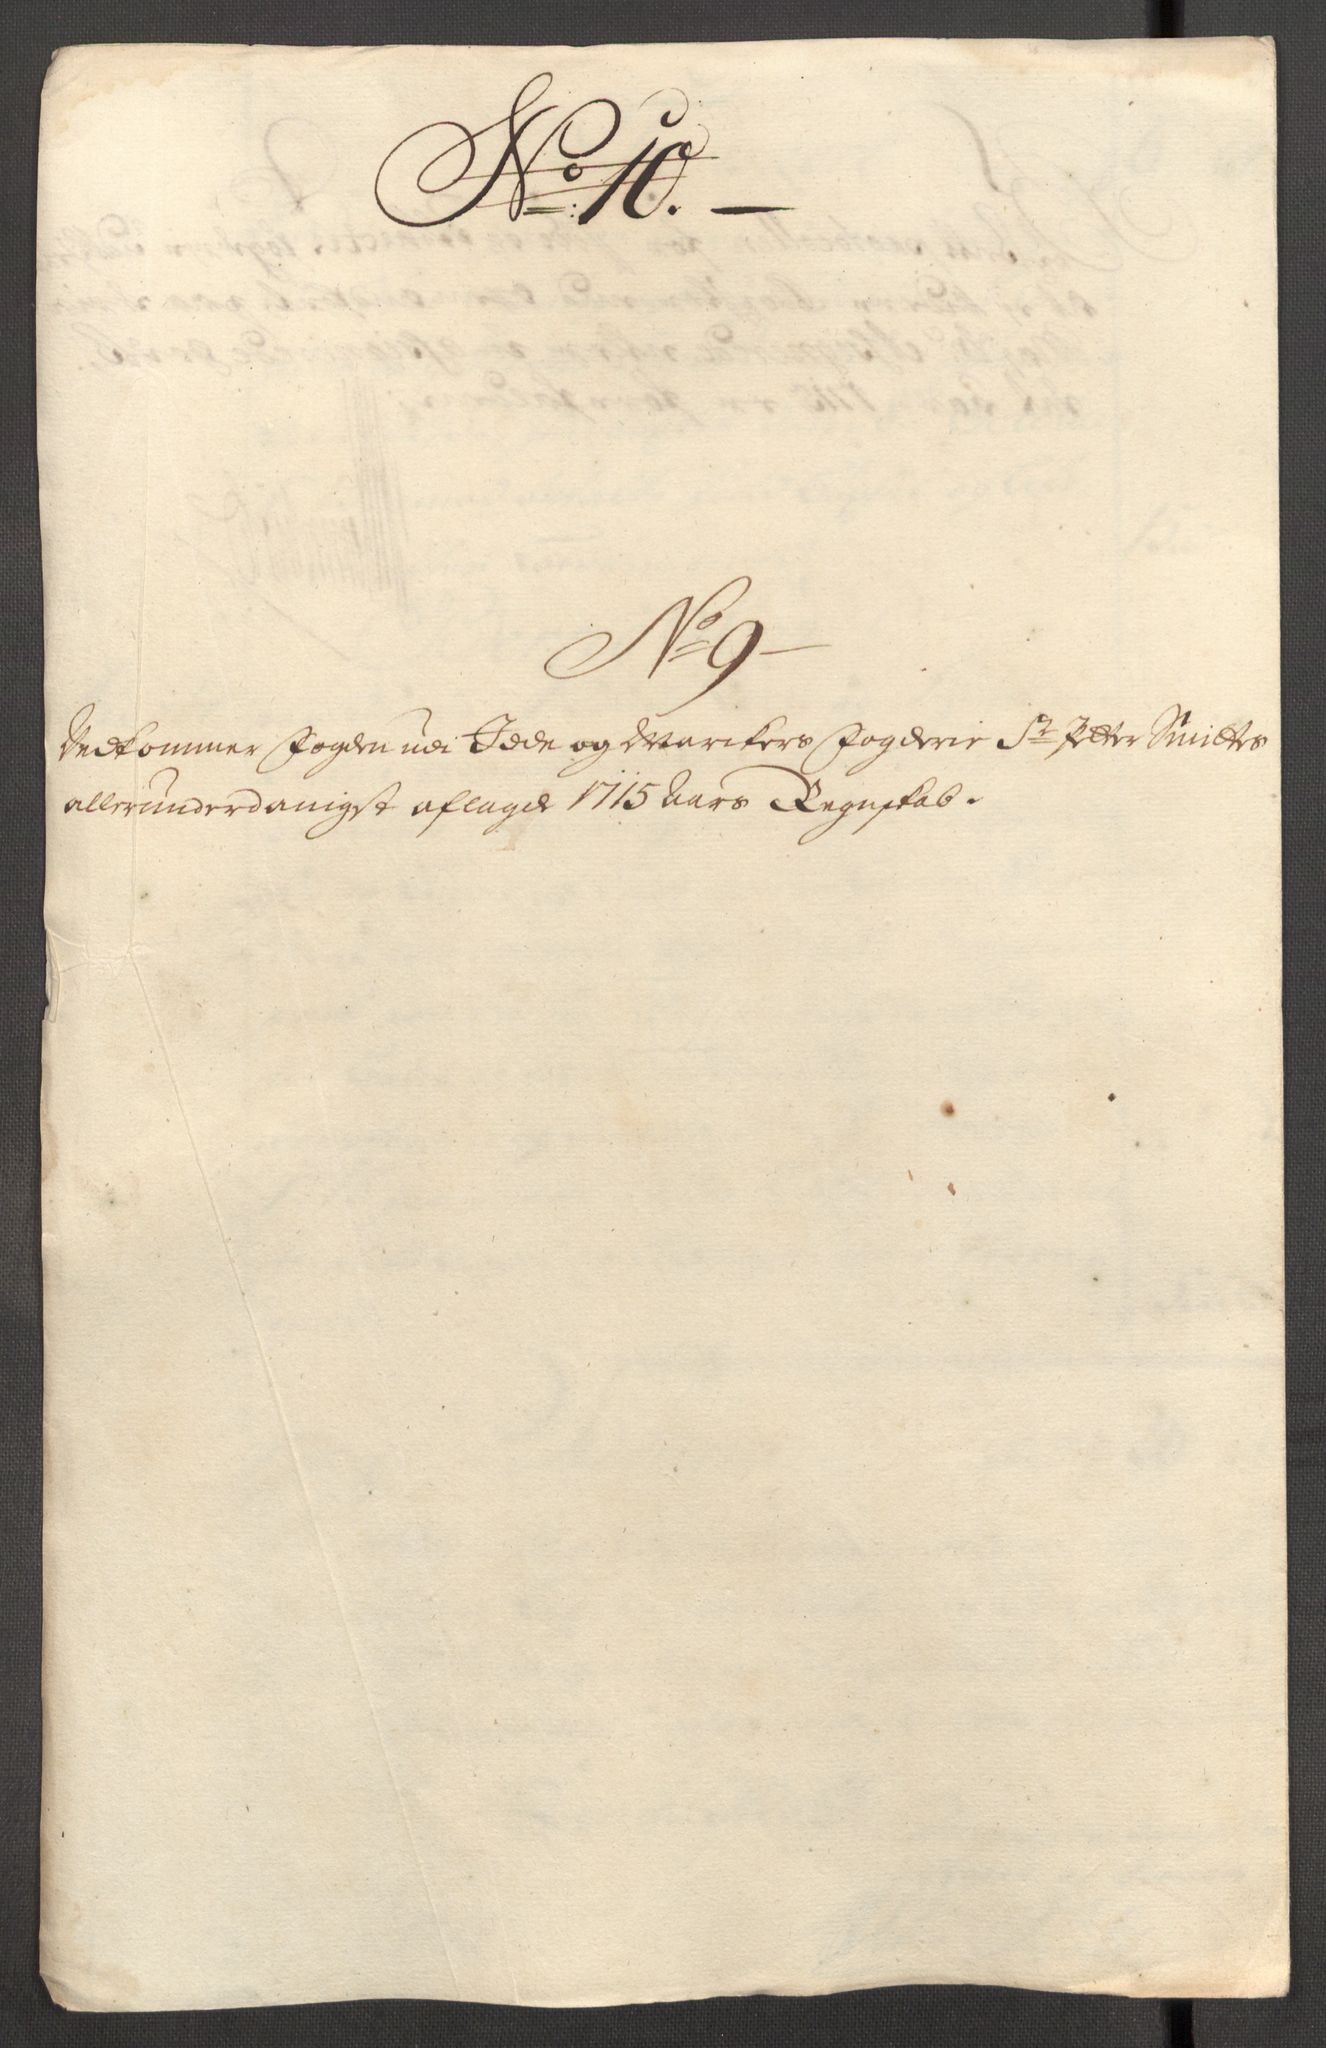 No: 10.
No 9
Vedkommer Fogden udi Idde og Marckers Fogderie Sr Petter Smittes
allerunderdanigst aflagde 1715 Aars Regnskab.